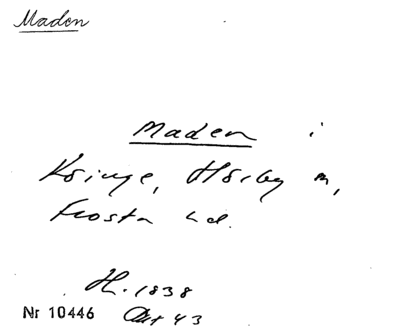 Maden
Maden i
Köinge, Hörby sn,
Frosta hd.
H. 1838
Nr 10446 Akt 43